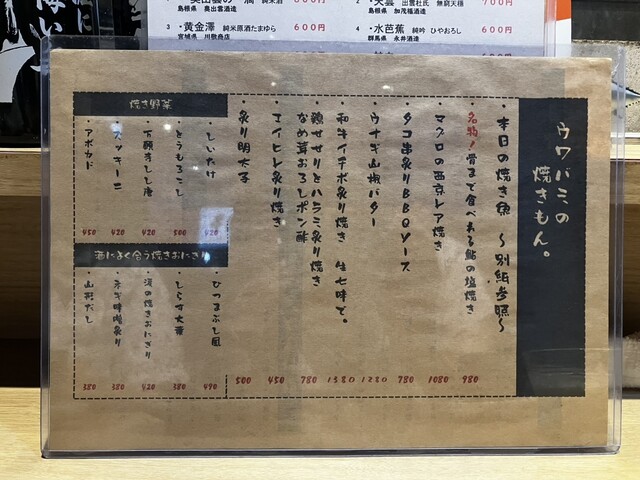 島根県 奥出雲酒造
600円
島根県 加茂福酒造
700円
3 ・黄金澤 純米原酒たまゆら
宮城県 川敬商店
600円
4 ・水芭蕉 純吟 ひやおろし
群馬県 永井酒造
600円
ウワバミの
焼きもん。
・本日の焼き魚 〜別紙参照〜
・名物!骨まで食べれる鮎の塩焼き 980
・マグロの西京レア焼き 1080
・タコ串炙りBBQソース 780
・ウナギ山椒バター 1280
・和牛イチボ炙り焼き 生七味で。 1580
・鶏せせりとハラミ炙り焼き
なめ茸おろしポン酢 780
・エイヒレ炙り焼き 450
・炙り明太子 500
焼き野菜
・しいたけ 420
・とうもろこし 500
・万願寺しし唐 420
・ズッキーニ 420
・アボカド 450
酒によく合う焼きおにぎり
・ひつまぶし風 490
・しらす大葉 380
・焼きおにぎり 420
・ネギ味噌炙り 380
・山形だし 380